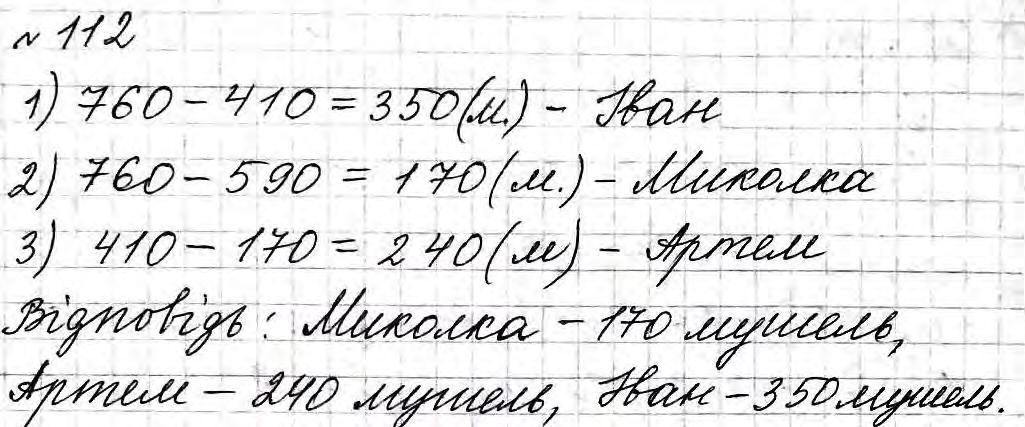 № 112
1) 760 - 410 = 350 (м.) - Іван
2) 760 - 590 = 170 (м.) - Миколка
3) 410 - 170 = 240 (м) - Артем
Відповідь: Миколка - 170 мушель,
Артем - 240 мушель, Іван - 350 мушель.